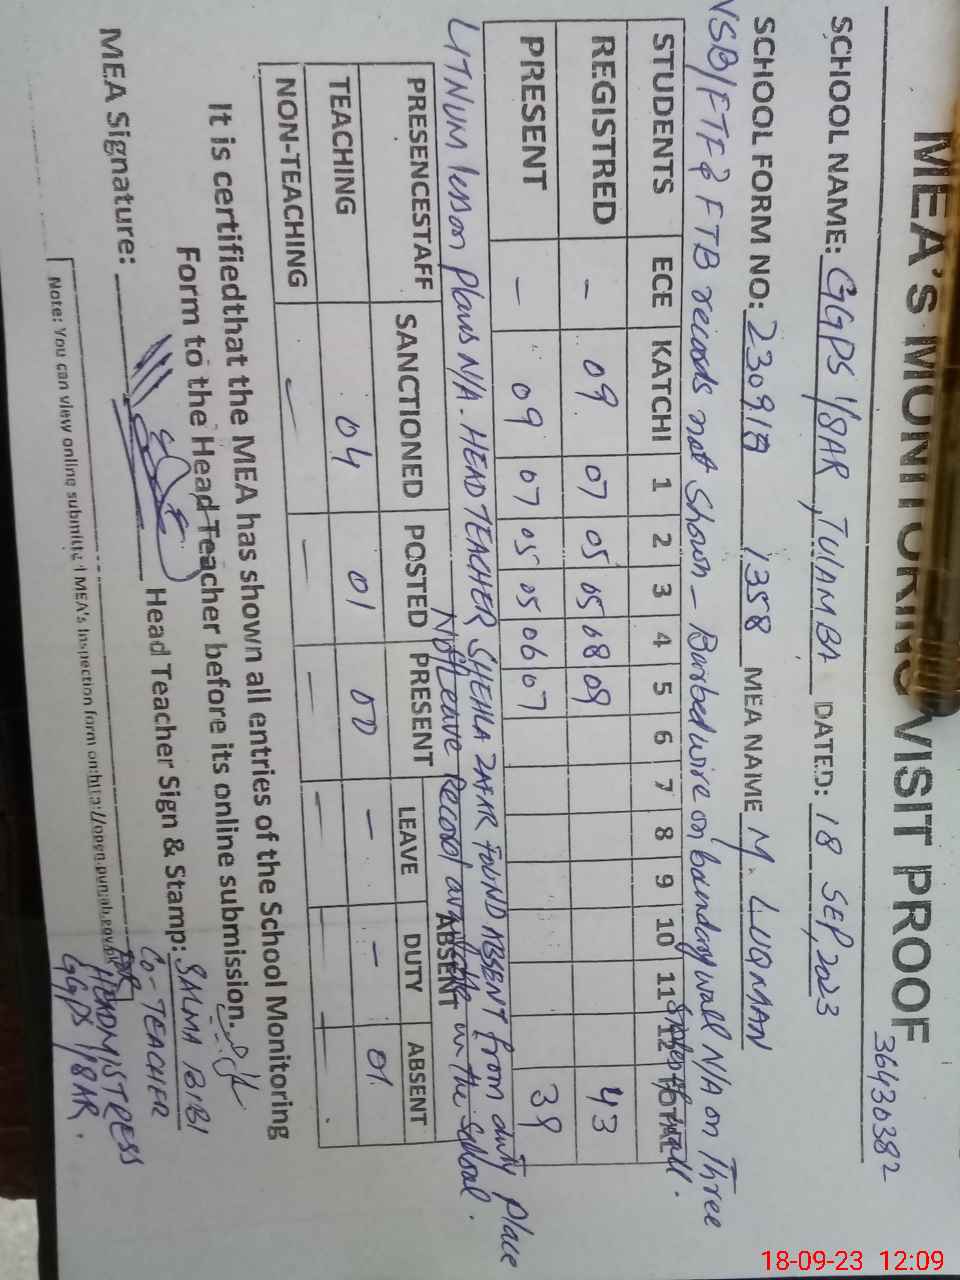 MEA'S MONITORING VISIT PROOF
36430382
SCHOOL NAME: GGPS 1/8AR, TULAMBA DATED: 18 SEP, 2023
SCHOOL FORM NO: 230918 1358 MEA NAME M. LUQMAN
NSB/FTF & FTB records not shown - Barbed wire on boundary wall N/A on Three
STUDENTS ECE KATCHI 1 2 3 4 5 6 7 8 9 10 11 12 TOTAL
REGISTRED - 09 07 05 05 08 09 43
PRESENT - 09 07 05 05 06 07 39
LITNUM lesson plans N/A. HEAD TEACHER SHEHLA ZAFAR FOUND ABSENT from duty place
Not Leave Record available in the school.
PRESENCESTAFF SANCTIONED POSTED PRESENT ABSENT
LEAVE DUTY ABSENT
TEACHING 04 01 00 - - 01
NON-TEACHING - - - - - -
It is certifiedthat the MEA has shown all entries of the School Monitoring
Form to the Head Teacher before its online submission.
MEA Signature: Head Teacher Sign & Stamp: SALMA BIBI
CO-TEACHER
FOR HEADMISTRESS
GGPS 1/8AR.
Note: You can view online submitted MEA's Inspection form on:http://open.punjab.gov.pk
18-09-23 12:09